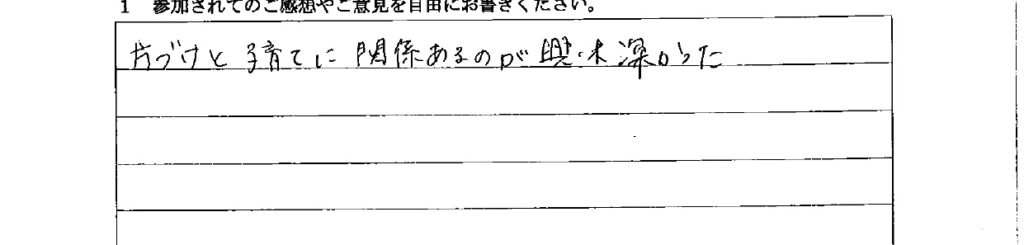 1 参加されてのご感想やご意見を自由にお書きください。
片づけと子育てに関係あるのが興味深かった